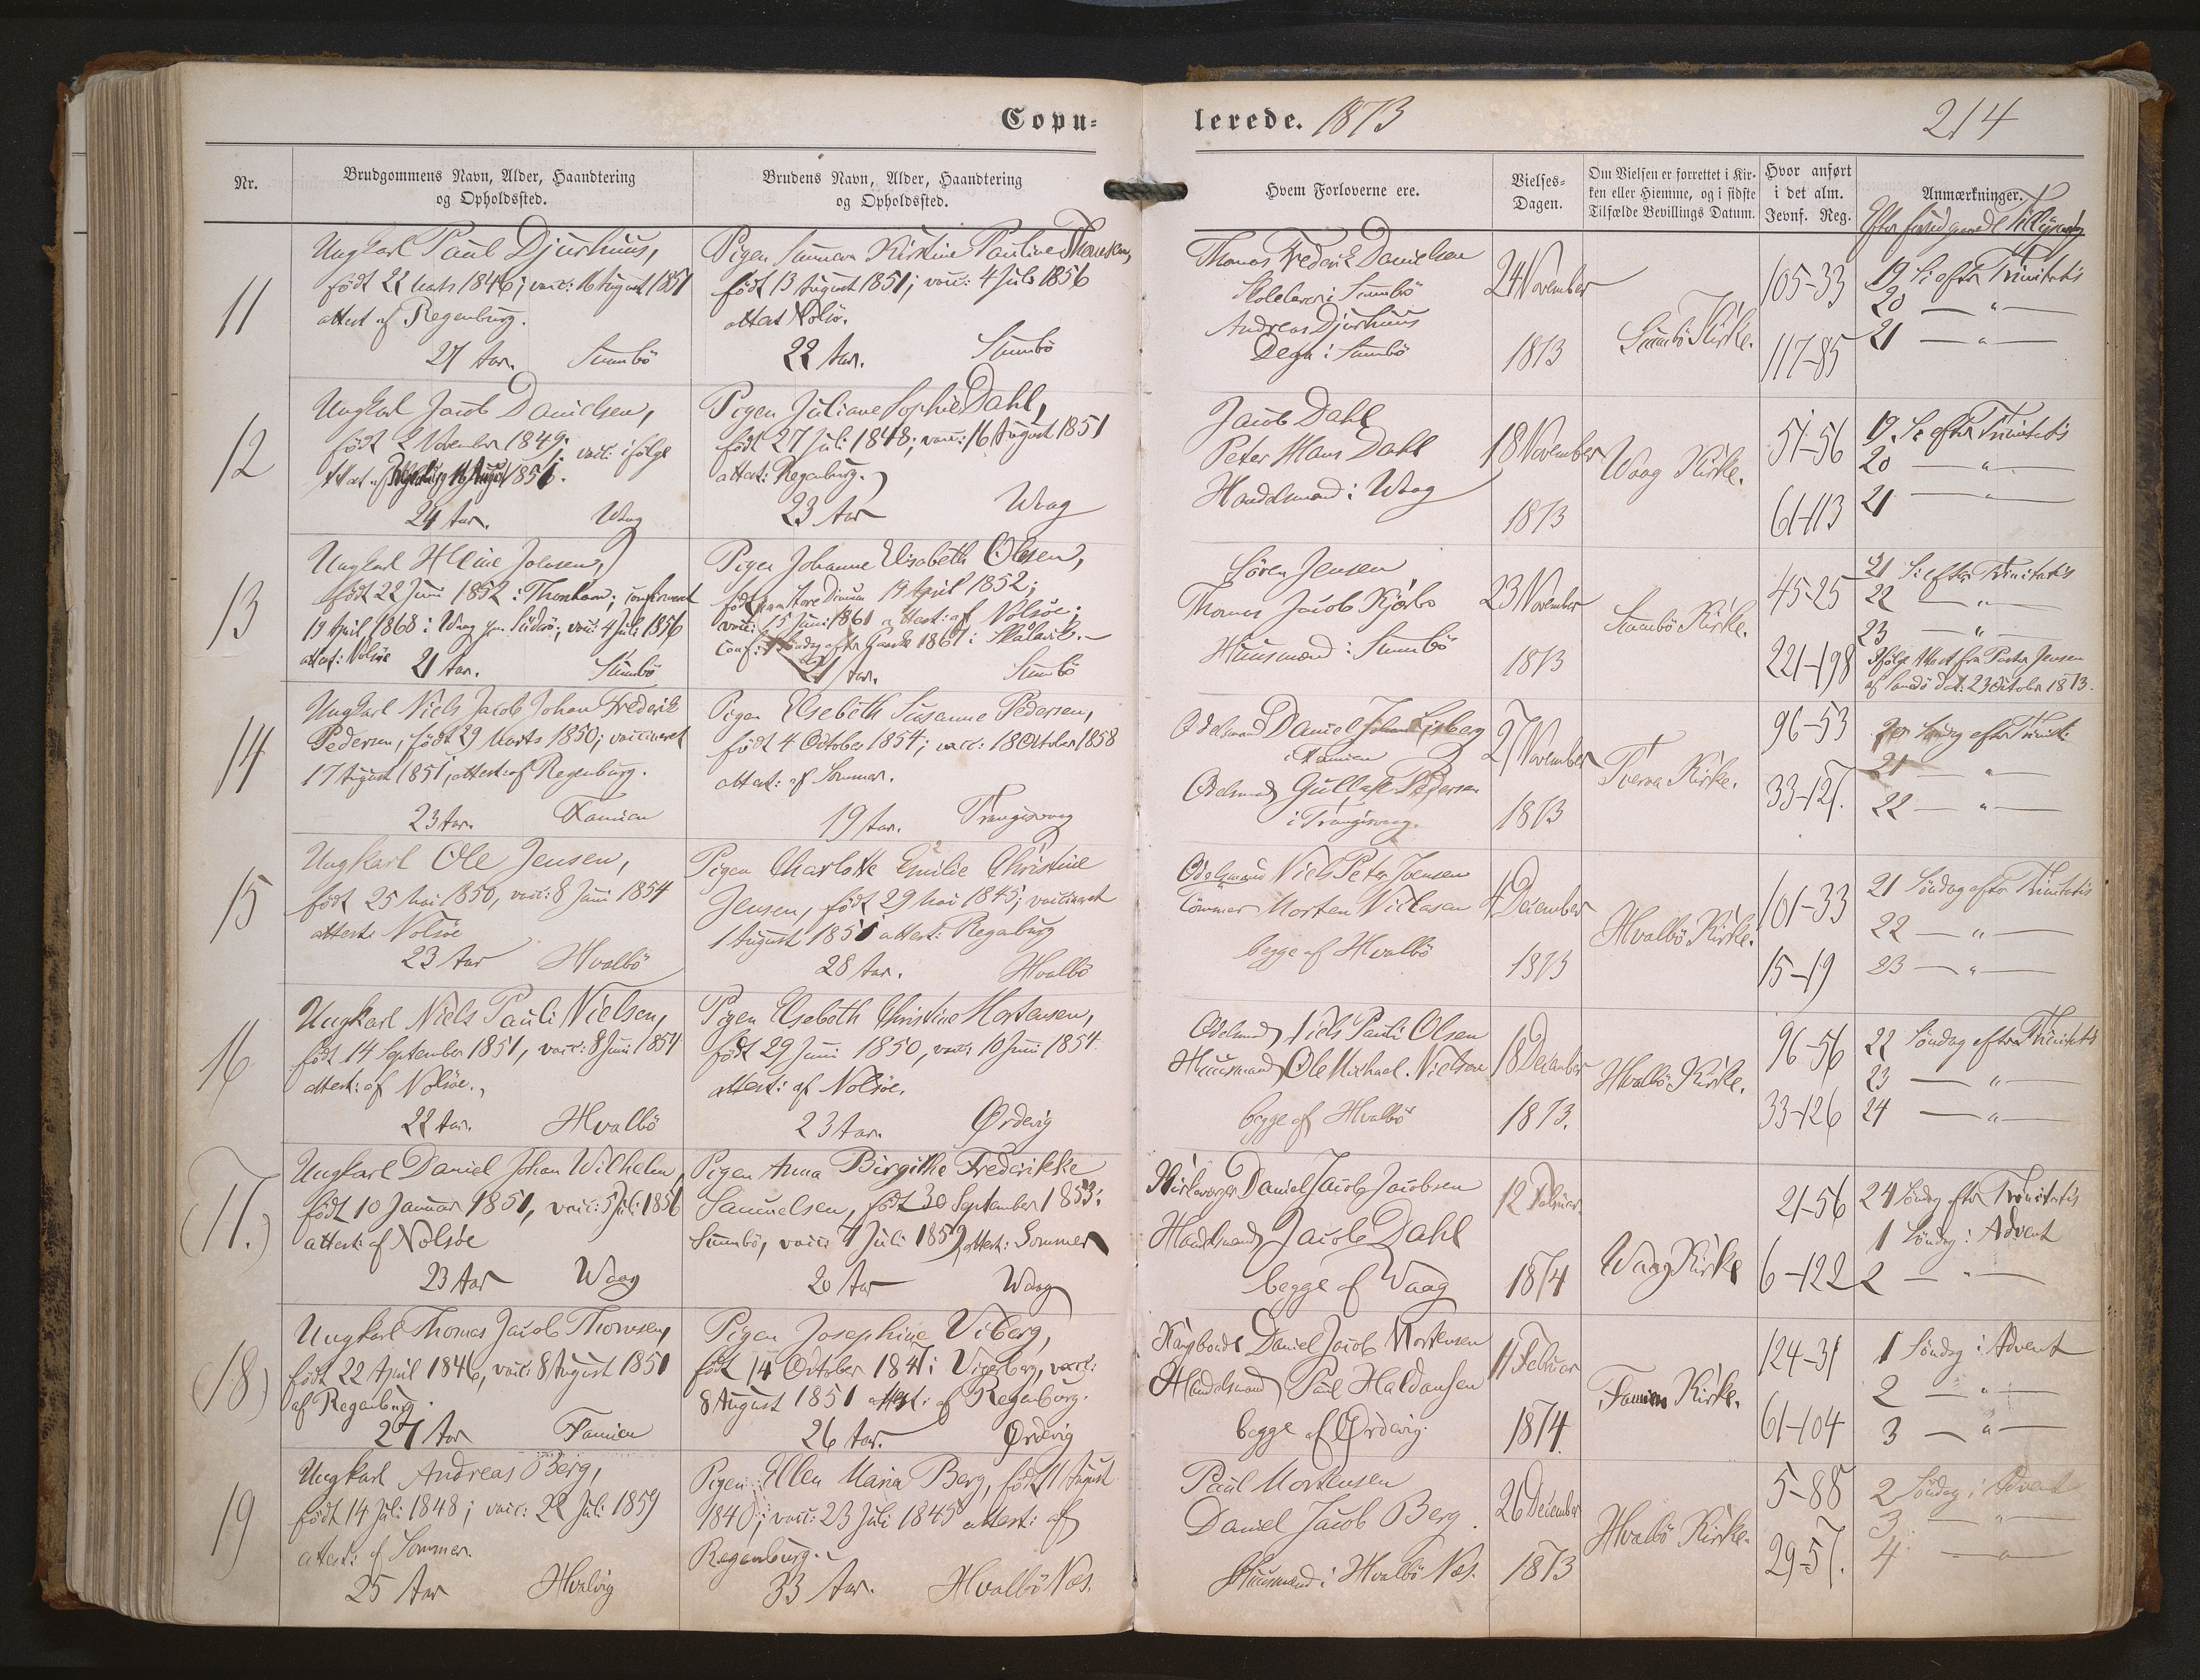 Copu-
lerede. 1873
214
Nr.
Brudgommens Navn, Alder, Haandtering
og Opholdssted.
Brudens Navn, Alder, Haandtering
og Opholdssted.
Hvem Forloverne ere.
Vielses-
Dagen.
Om Vielsen er forrettet i Kir-
ken eller Hiemme, og i sidste
Tilfælde Bevillings Datum.
Hvor anført
i det alm.
Jevnf. Reg.
Anmærkninger.
Efter foregaaende Tillysning
11
Ungkarl Paul Djurhuus,
født 22 Marts 1846; vacc: 16 August 1851
attest af Regenburg.
27 Aar. Sumbö
Pigen Sunneva Kirstine Pauline Thomsen,
født 13 August 1851; vacc: 4 Juli 1856
attest Nolsöe.
22 Aar. Sumbö
Thomas Frederik Danielsen
Skolelærer i Sumbö
Andreas Djurhuus
Degn i Sumbö
24 November
1873
Sumbö Kirke.
105-33
117-85
19 S. efter Trinitatis
20 — " —
21 — " —
12
Ungkarl Jacob Danielsen,
født 2 November 1849; vacc: ifølge
Attest af 1851.
24 Aar. Waag
Pigen Juliane Sophie Dahl,
født 27 Juli 1848; vacc: 16 August 1851
attest: Regenburg.
23 Aar Waag
Jacob Dahl
Peter Hans Dahl
Handelsmænd i Waag
18 November
1873
Waag Kirke.
51-56
61-113
19. S. efter Trinitatis
20 — " —
21 — " —
13
Ungkarl Heine Joensen,
født 22 Juni 1852 i Thorshavn; confirmeret
19 April 1868 i Waag paa Suderö; vacc: 4 Juli 1856
attest: Nolsöe 21 Aar. Sumbö
Pigen Johanne Elisabeth Olsen,
født paa Store Dimon 19 April 1852;
vacc: 15 Juni 1861 attest: af Nolsöe;
conf: 1 Søndag efter Paaske 1867 i Skaalevik.
21 Aar. Sumbö
Sören Jensen
Thomas Jacob Kjærbo
Huusmænd i Sumbö
23 November
1873
Sumbö Kirke.
45-25
221-198
21 S. efter Trinitatis
22 — " —
23 — " —
Ifølge Attest fra Pastor Jensen
af Sandö dat: 23 October 1873.
14
Ungkarl Niels Jacob Johan Frederik
Pedersen, født 29 Marts 1850; vaccineret
17 August 1851, attest: af Regenburg.
23 Aar. Famien
Pigen Elsebeth Susanne Pedersen,
født 4 October 1854; vacc: 18 October 1858
attest: af Sommer.
19 Aar. Trangisvaag
Odelsmand Daniel Johan Lisberg
i Famien
Odelsmand Gullak Pedersen
i Trangisvaag.
27 November
1873
Tveraa Kirke.
96-53
33-127.
20 Søndag efter Trinit:
21 — " —
22 — " —
15
Ungkarl Ole Jensen,
født 25 Mai 1850, vacc: 8 Juni 1854
attest: Nolsöe
23 Aar Hvalbö
Pigen Charlotte Emilie Christine
Jensen, født 29 Mai 1845; vaccineret
1 August 1851 attest: Regenburg
28 Aar. Hvalbö
Odelsmand Niels Peter Joensen
Tømmer Morten Niclasen
begge af Hvalbö
4 December
1873
Hvalbö Kirke.
101-33
15-19
21 Søndag efter Trinitatis
22 — " —
23 — " —
16
Ungkarl Niels Pauli Nielsen,
født 14 September 1851, vacc: 8 Juni 1854
attest: af Nolsöe.
22 Aar. Hvalbö
Pigen Elsebeth Christine Mortensen,
født 29 Juni 1850, vacc: 10 Juni 1854
attest: af Nolsöe.
23 Aar. Ørdevig
Odelsmand Niels Pauli Olsen
Huusmand Ole Michael Nielsen
begge af Hvalbö
18 December
1873.
Hvalbö Kirke.
96-56
33-126
22 Søndag efter Trinitatis
23 — " —
24 — " —
(17.)
Ungkarl Daniel Johan Wilhelm,
født 10 Januar 1851, vacc: 5 Juli 1856
attest: af Nolsöe
23 Aar Waag
Pigen Anna Birgithe Frederikke
Samuelsen, født 30 September 1853 i
Sumbö, vacc: 7 Juli 1859 attest: Sommer
20 Aar Waag
Kirkeværger Daniel Jacob Jacobsen
Handelsmand Jacob Dahl
begge af Waag
12 Februar.
1874
Waag Kirke
21-56
6-122
24 Søndag efter Trinitatis
1 Søndag i Advent
2 — " —
(18)
Ungkarl Thomas Jacob Thomsen,
født 22 April 1846, vacc: 8 August 1851
af Regenburg.
27 Aar Famien
Pigen Josephine Viberg,
født 14 October 1847 i Vigerberg, vacc:
8 August 1851 attest: af Regenburg.
26 Aar. Ørdevig
Kongsbonde Daniel Jacob Mortensen
Handelsmand Poul Haldansen
begge af Ørdevig.
11 Februar
1874.
Famien Kirke.
124-31
61-104
1 Søndag i Advent
2 — " —
3 — " —
19
Ungkarl Andreas Berg,
født 14 Juli 1848; vacc: 22 Juli 1859
attest: af Sommer.
25 Aar Hvalvig
Pigen Ellen Maria Berg, født 11 August
1840; vacc: 23 Juli 1845 attest: af
Regenburg.
33 Aar. Hvalbö Næs.
Paul Mortensen
Daniel Jacob Berg.
Huusmænd i Hvalbö Næs.
26 December
1873
Hvalbö Kirke.
5-88
29-57.
2 Søndag i Advent
3 — " —
4 — " —